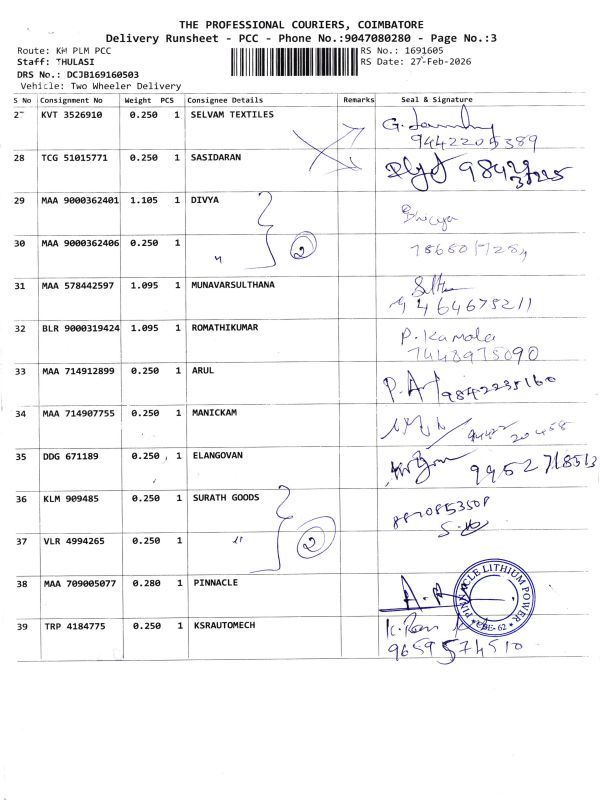 THE PROFESSIONAL COURIERS, COIMBATORE
Delivery Runsheet - PCC - Phone No.:9047080280 - Page No.:3
Route: KM PLM PCC
RS No.: 1691605
Staff: THULASI
RS Date: 27-Feb-2026
DRS No.: DCJB169160503
Vehicle: Two Wheeler Delivery
S No Consignment No Weight PCS Consignee Details Remarks Seal & Signature
2 KVT 3526910 0.250 1 SELVAM TEXTILES
9442205389
28 TCG 51015771 0.250 1 SASIDARAN
29 MAA 9000362401 1.105 1 DIVYA
30 MAA 9000362406 0.250 1 " 2
31 MAA 578442597 1.095 1 MUNAVARSULTHANA
9464675211
32 BLR 9000319424 1.095 1 ROMATHIKUMAR P. Kamala
7448975090
33 MAA 714912899 0.250 1 ARUL
9842235160
34 MAA 714907755 0.250 1 MANICKAM
35 DDG 671189 0.250 1 ELANGOVAN 9952718513
36 KLM 909485 0.250 1 SURATH GOODS
8870853508
37 VLR 4994265 0.250 1 " 2
38 MAA 709005077 0.280 1 PINNACLE
PINNACLE LITHIUM POWER
CBE-62
39 TRP 4184775 0.250 1 KSRAUTOMECH
9659574510